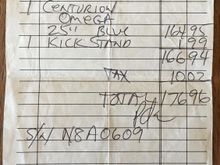 1 CENTURION
OMEGA
25" BLUE 16495
1 KICK STAND 199
16694
TAX 1002
TOTAL 17696
S/N N8A0609